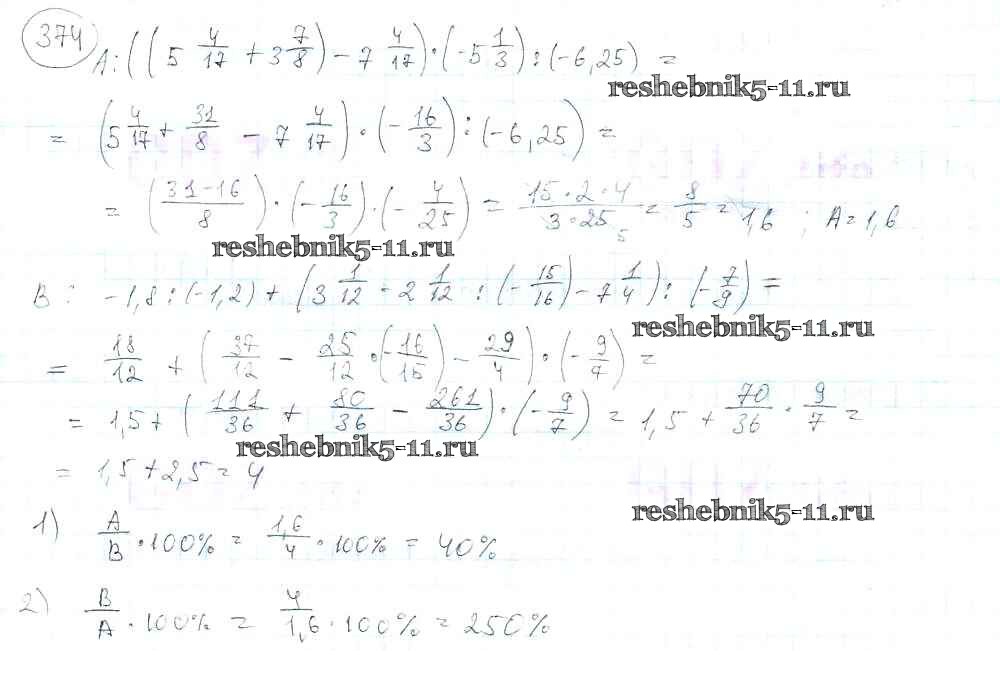 374
A: ((5 4/17 + 3 7/8) - 7 4/17) · (-5 1/3) : (-6,25) =
reshebnik5-11.ru
= (5 4/17 + 31/8 - 7 4/17) · (-16/3) : (-6,25) =
= ((31-16)/8) · (-16/3) · (-4/25) = (15·2·4)/(3·25) 5 = 8/5 = 1,6 ; A = 1,6
reshebnik5-11.ru
B: -1,8 : (-1,2) + (3 1/12 - 2 1/12 : (-15/16) - 7 1/4) : (-7/9) =
reshebnik5-11.ru
= 18/12 + (37/12 - 25/12 · (-16/15) - 29/4) · (-9/7) =
= 1,5 + (111/36 + 80/36 - 261/36) · (-9/7) = 1,5 + 70/36 · 9/7 =
reshebnik5-11.ru
= 1,5 + 2,5 = 4
reshebnik5-11.ru
1) A/B · 100% = 1,6/4 · 100% = 40%
2) B/A · 100% = 4/1,6 · 100% = 250%